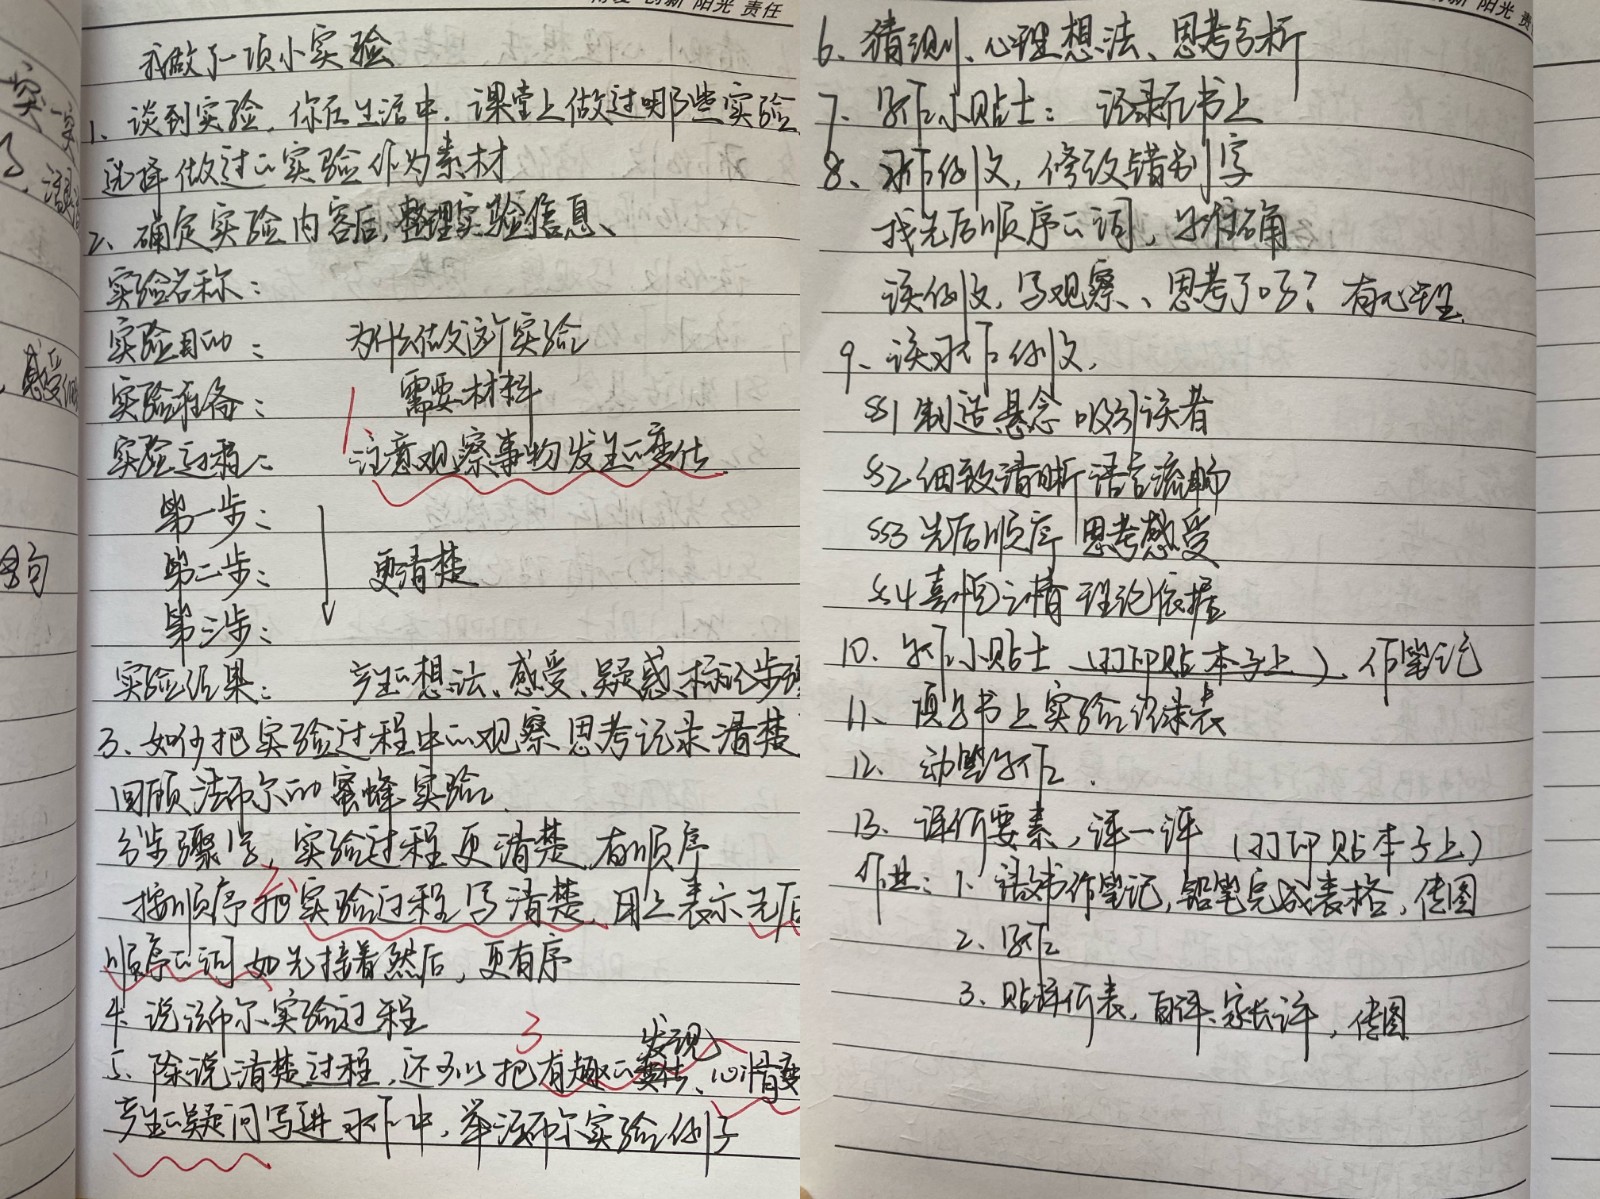 创新 阳光 责任
我做了一项小实验
1、谈到实验，你在生活中，课堂上做过哪些实验
选择做过的实验作为素材
2、确定实验内容后，整理实验信息、
实验名称：
实验目的： 为什么做这个实验
实验准备： 需要材料
实验过程： 注意观察事物发生的变化
第一步：
第二步： 更清楚
第三步：
实验结果： 产生的想法、感受、疑惑、标记步骤
3、如何把实验过程中的观察思考记录清楚
回顾法布尔的蜜蜂实验
分步骤写，实验过程更清楚，有顺序
2、
按顺序把实验过程写清楚，用上表示先后
顺序的词 如先接着然后，更有序
4、说法布尔实验过程
3
发现
5、除说清楚过程，还可以把有趣的变化、心情变
产生的疑问写进习作中，举法布尔实验例子
阳光 责
6、猜测、心理想法、思考分析
7、写作小贴士： 记录在书上
8、习作例文，修改错别字
找先后顺序的词，写准确
读例文，写观察、思考了吗？有心理
9、读习作例文，
§1 制造悬念 吸引读者
§2 细致清晰 语言流畅
§3 先后顺序 思考感受
§4 喜悦之情 理论依据
10、写作小贴士（打印贴本子上）、作笔记
11、填写书上实验记录表
12、动笔写作
13、评价要素，评一评（打印贴本子上）
作业：1、语书作笔记，铅笔完成表格，传图
2、写作
3、贴评价表，自评、家长评，传图
感受